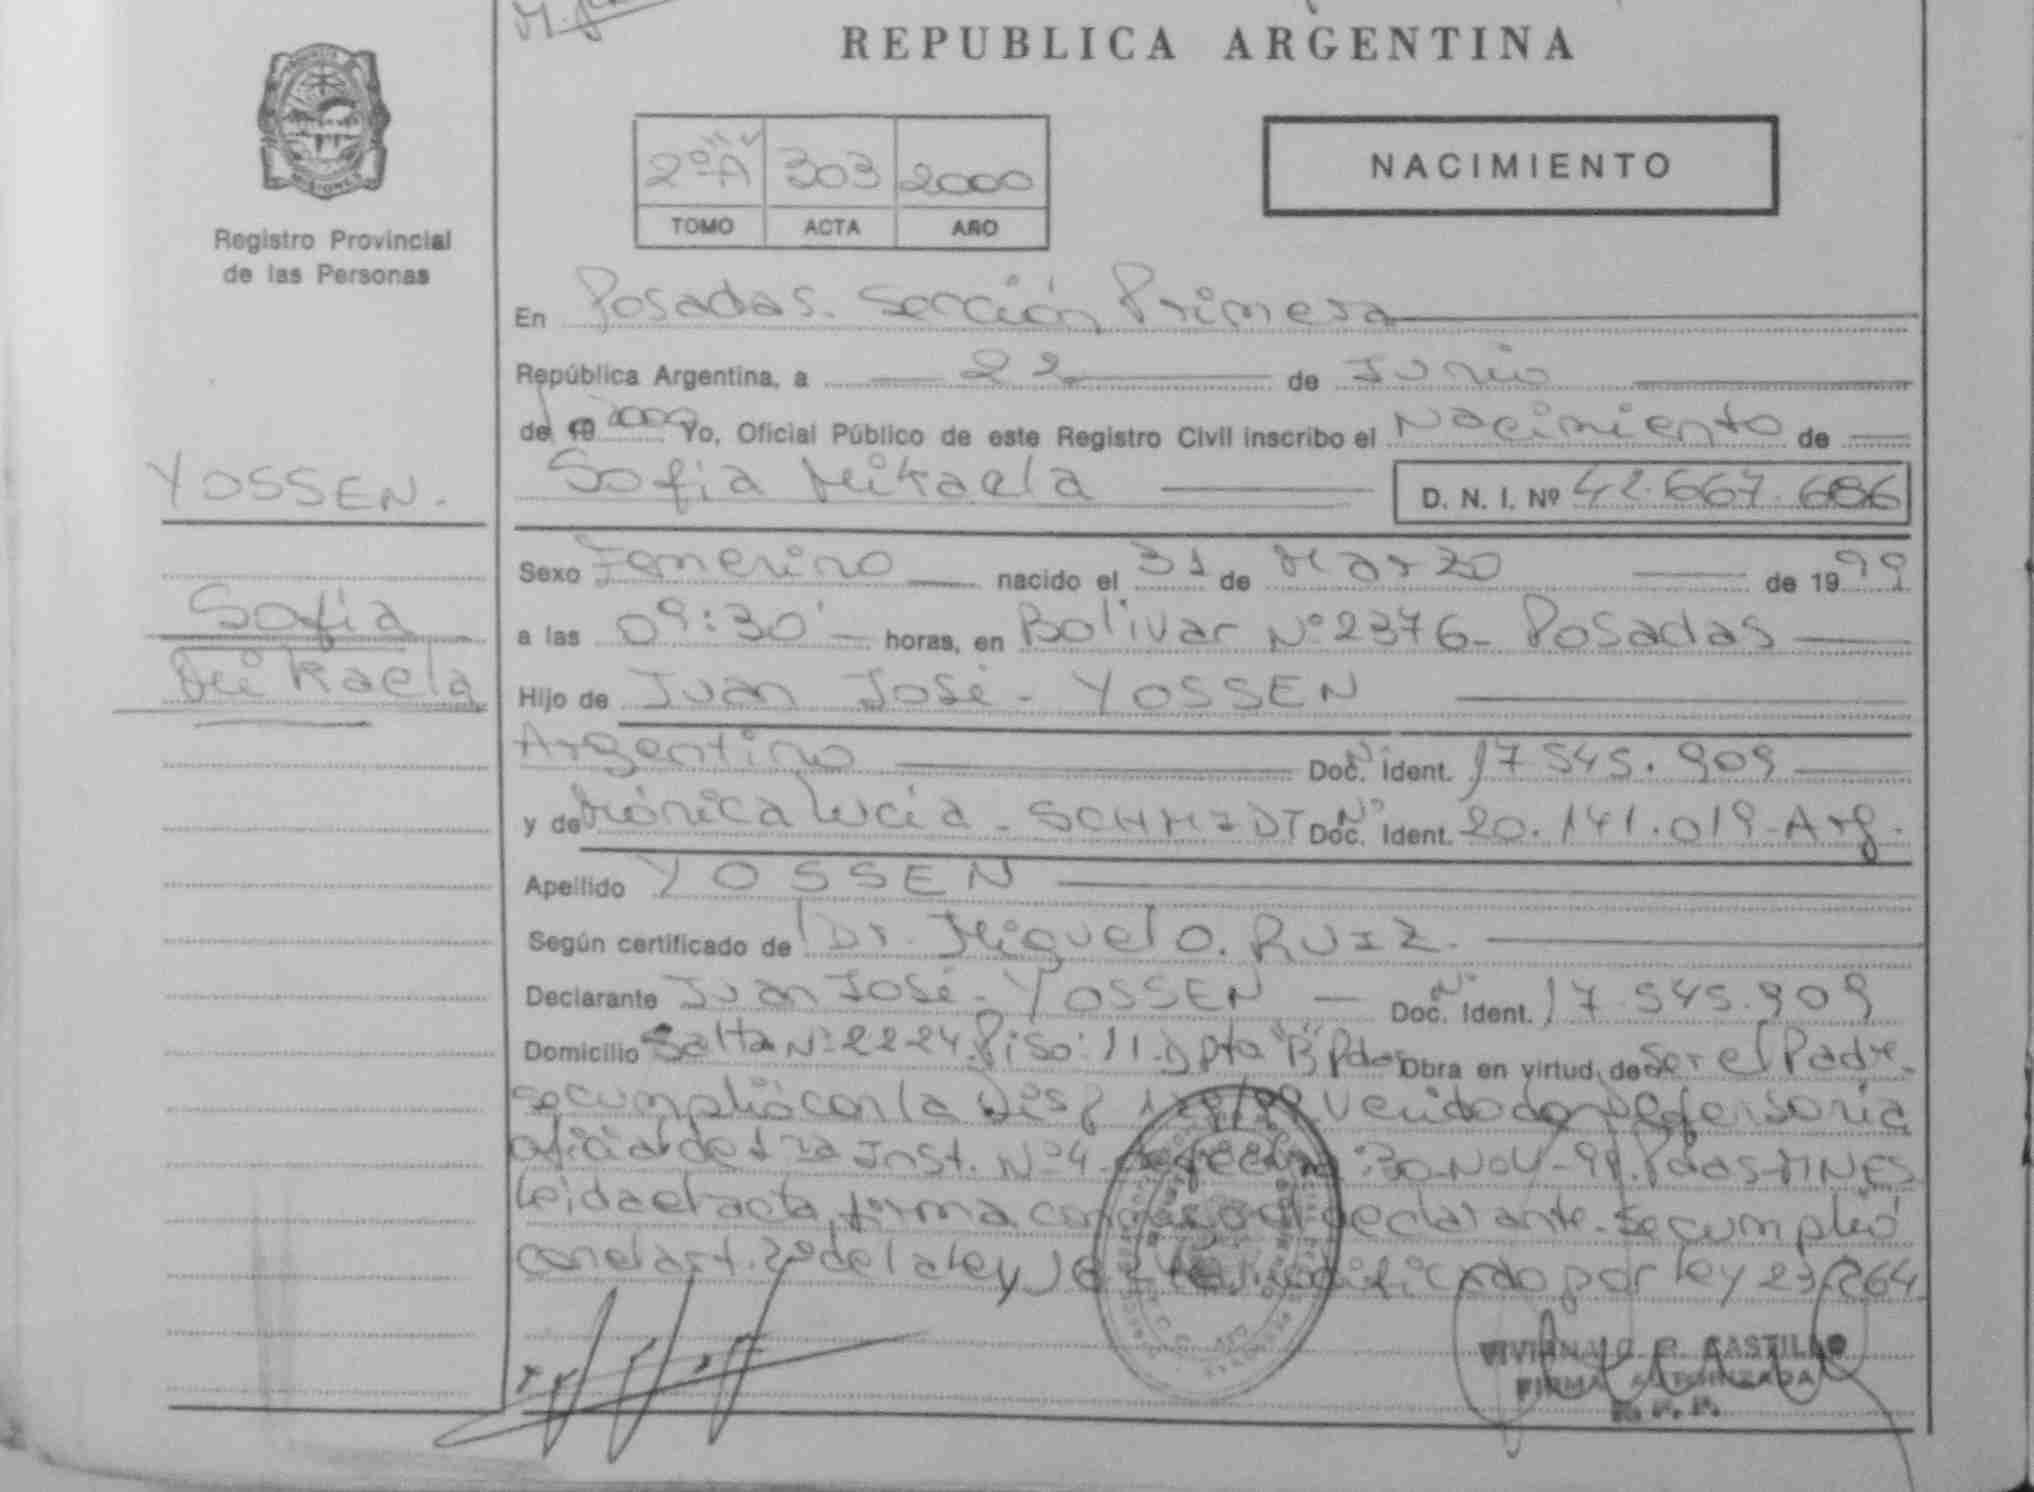 REPUBLICA ARGENTINA
PROVINCIA
MISIONES
Registro Provincial
de las Personas
2º "A" 303 2000
TOMO ACTA AÑO
NACIMIENTO
En Posadas. Sección Primera
República Argentina, a 22 de Junio
de 19 2000 Yo, Oficial Público de este Registro Civil inscribo el Nacimiento de
YOSSEN.
Sofia Mikaela D. N. I. Nº 42.667.686
Sexo Femenino nacido el 31 de Marzo de 1999
Sofia
a las 09:30' horas, en Bolivar Nº 2376- Posadas
Mikaela
Hijo de Juan José - YOSSEN
Argentino Doc. Nº Ident. 17.545.909
y de Mónica Lucía - SCHMIDT Doc. Nº Ident. 20.141.019-Arg.
Apellido YOSSEN
Según certificado de Dr. Miguel O. RUIZ.
Declarante Juan José - YOSSEN - Doc. Nº Ident. 17.545.909
Domicilio Salta Nº 2224. Piso: 11. Dpto "B" Pdas Obra en virtud de Ser el Padre.
se cumplió con la Disp Defensoria
oficial de 1ra Inst. Nº 4 de fecha: 30-Nov-99. Pdas-MNES
Leida el acta, firma conmigo el declarante. Se cumplió
con el art. 2º de la ley modificado por ley 23.264
VIVIANA C. R. CASTILLO
FIRMA AUTORIZADA